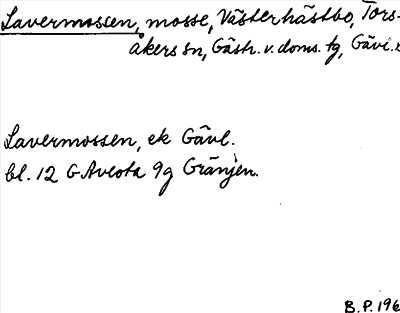 Lavermossen, mosse, Västerhästbo, Tors-
åkers sn, Gästr. v. doms. tg, Gävl.
Lavermossen, ek Gävl.
bl. 12 G Avesta 9g Gränjen.
B.P. 196